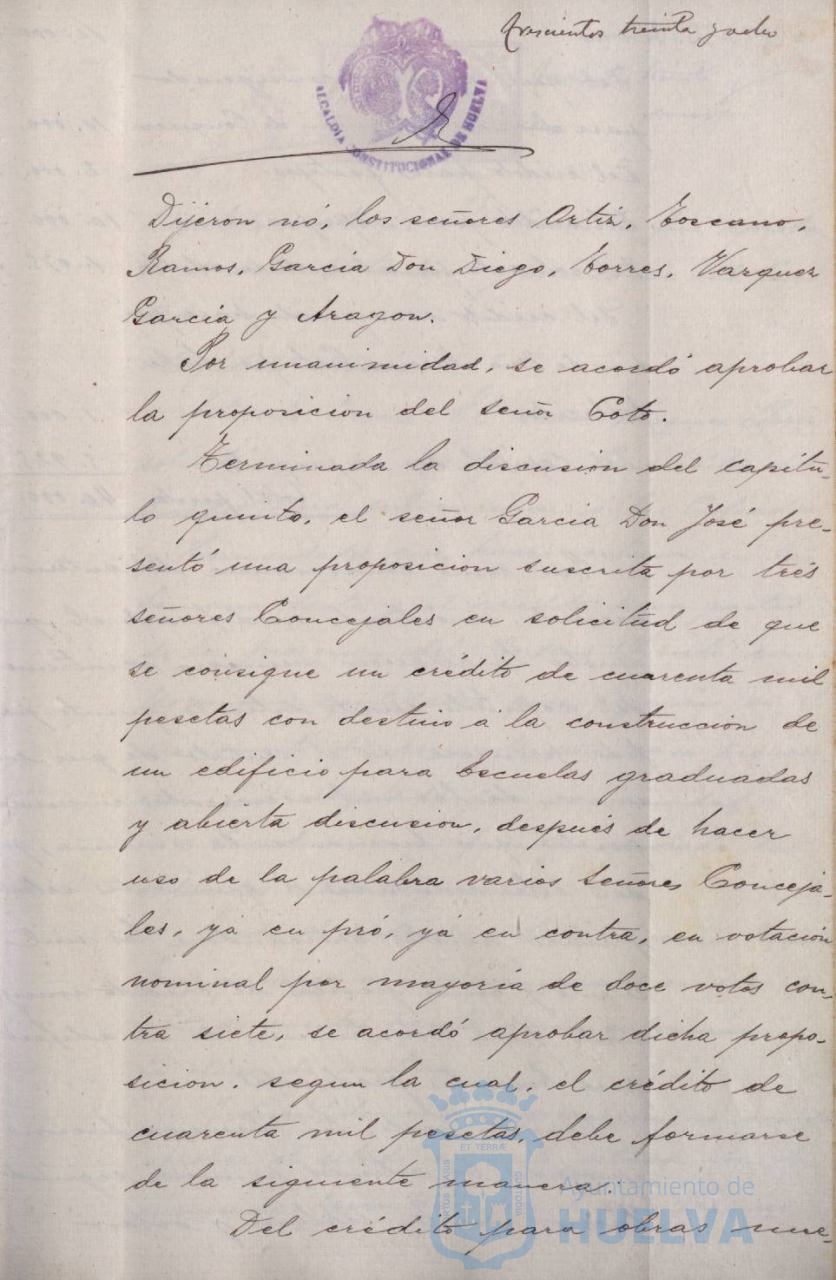 trescientos treinta y ocho
ALCALDIA CONSTITUCIONAL DE HUELVA
Dijeron nó, los señores Ortiz, Toscano,
Ramos, Garcia Don Diego, Torres, Vazquez
Garcia y Aragon.
Por unanimidad, se acordó aprobar
la proposicion del señor Coto.
Terminada la discusion del capitu-
lo quinto, el señor Garcia Don José pre-
sentó una proposicion suscrita por trés
señores Concejales en solicitud de que
se consigne un crédito de cuarenta mil
pesetas con destino á la construccion de
un edificio para Escuelas graduadas
y abierta discusion, después de hacer
uso de la palabra varios señores Conceja-
les, yá en pró, yá en contra, en votación
nominal por mayoría de doce votos con-
tra siete, se acordó aprobar dicha propo-
sicion, segun la cual, el crédito de
cuarenta mil pesetas, debe formarse
de la siguiente manera:
Del crédito para obras nue-
ET TERRÆ
CUSTODIA
Ayuntamiento de
HUELVA